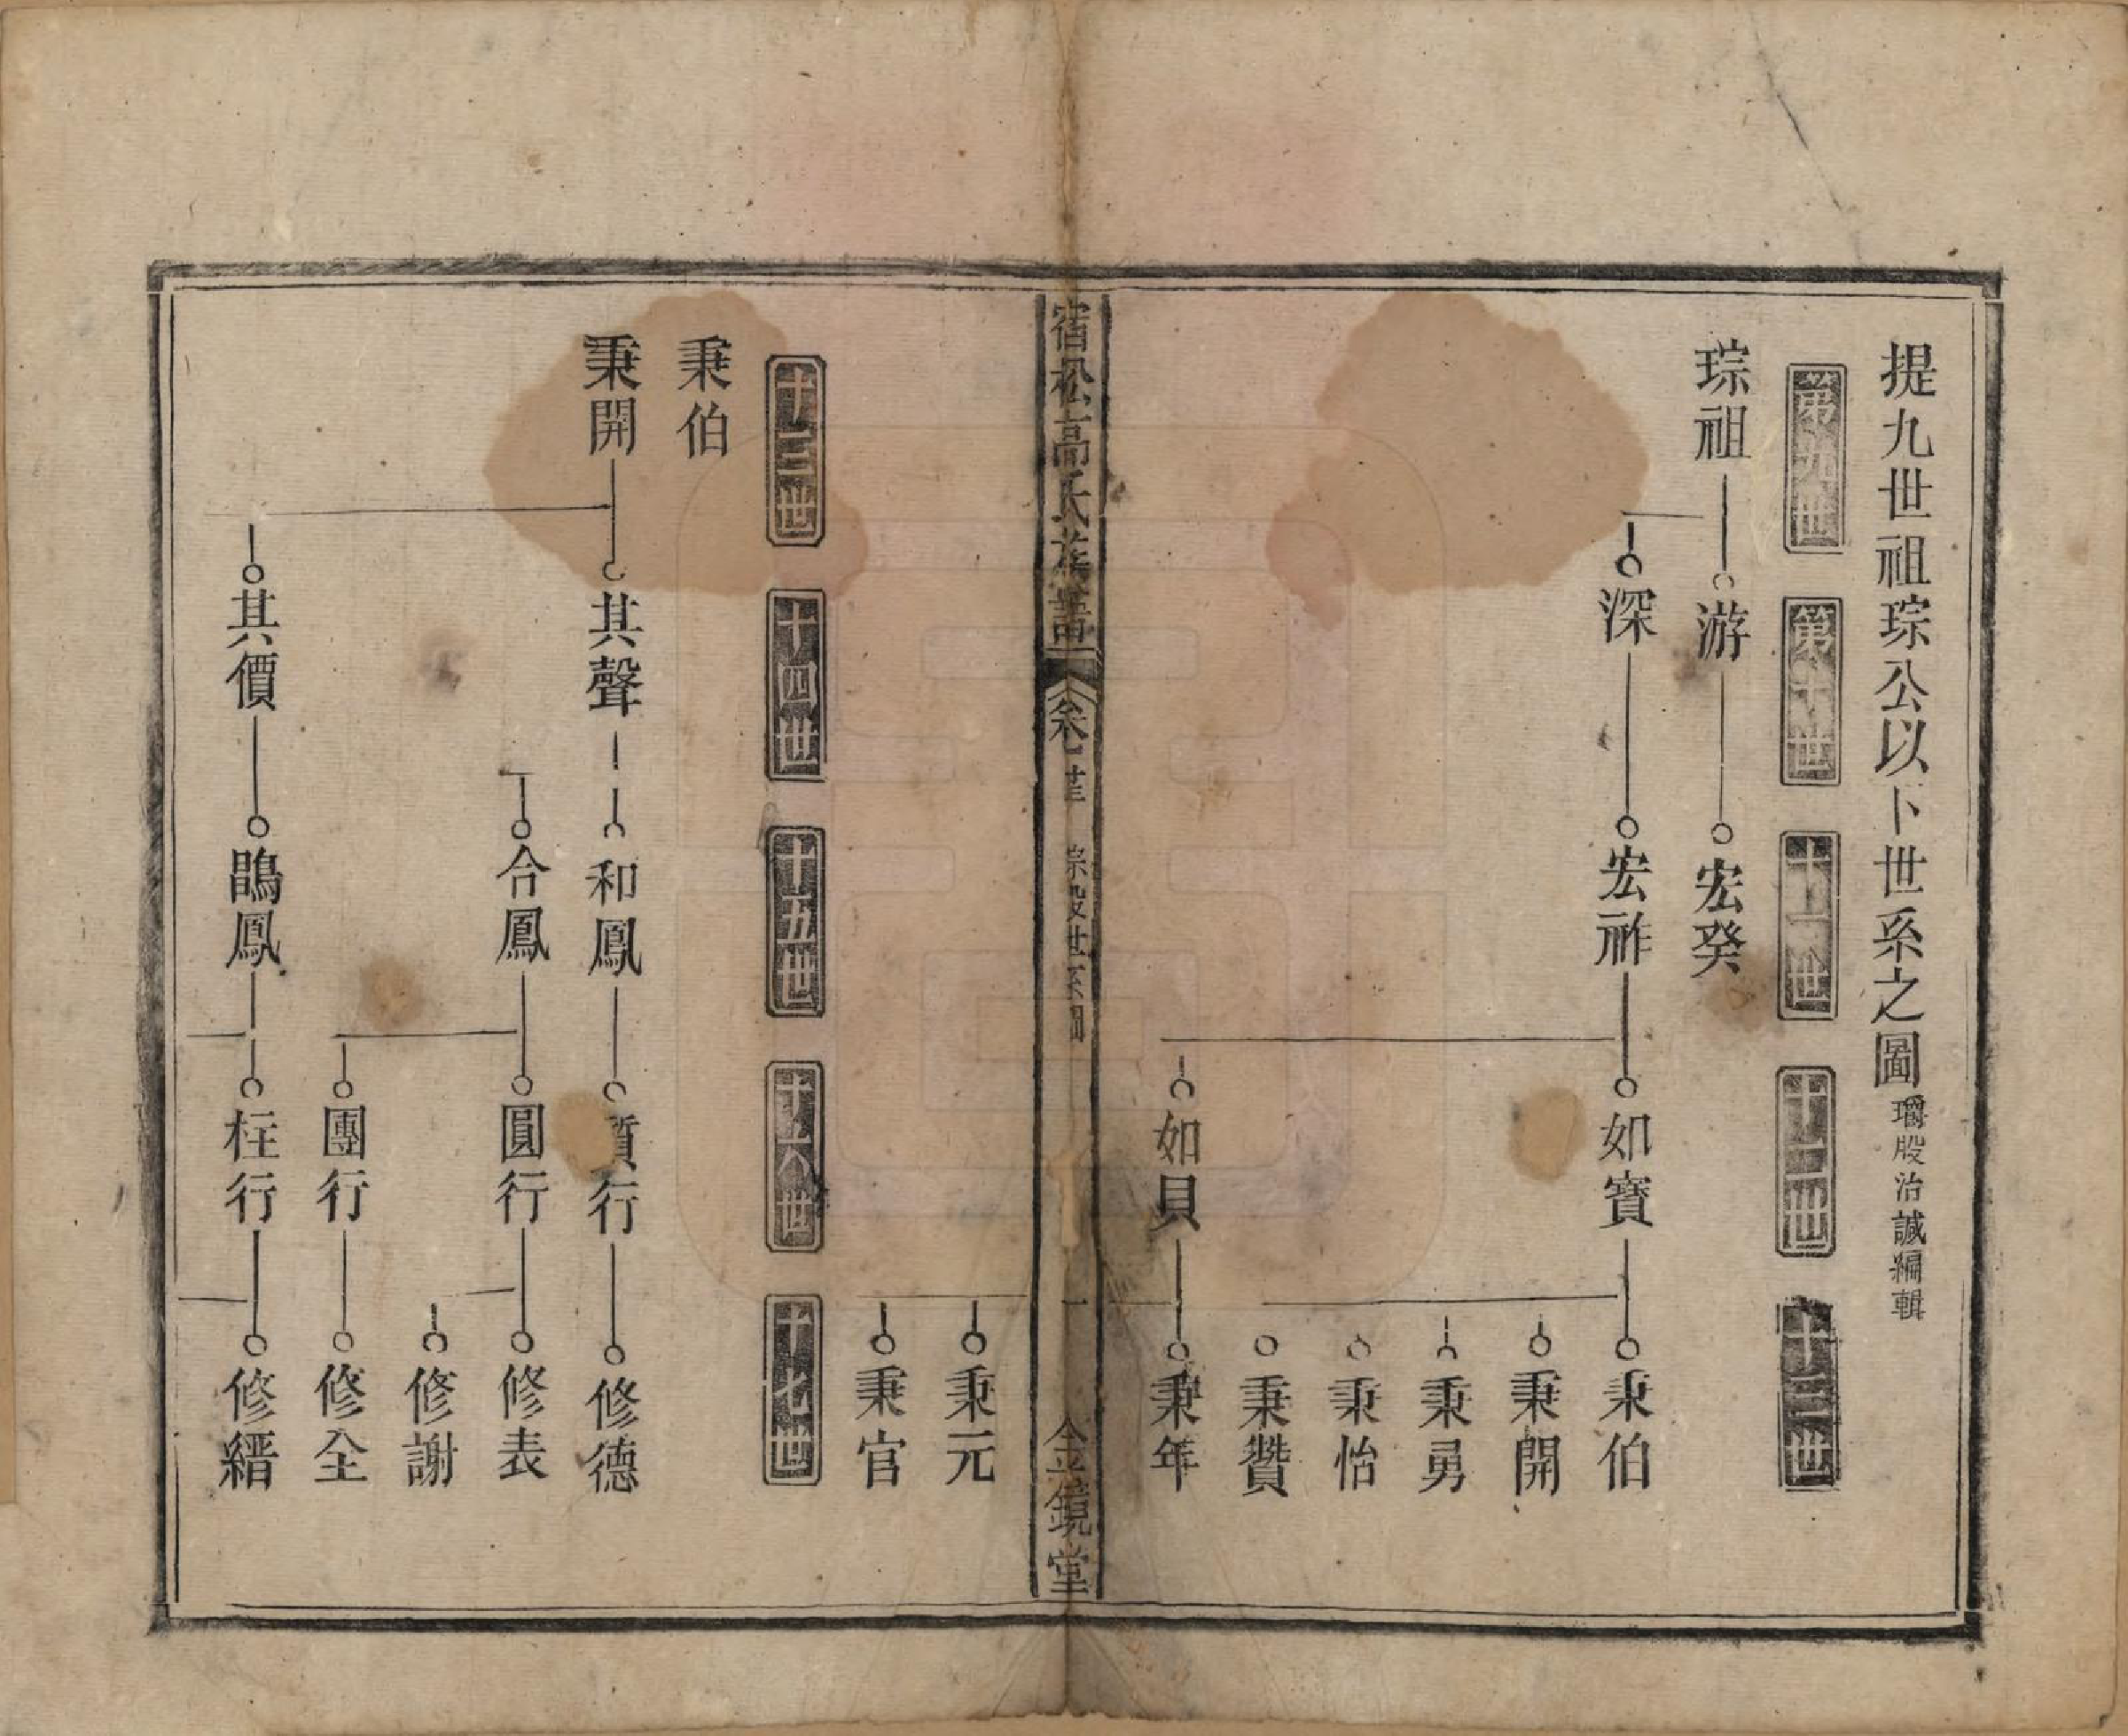 提九世祖琮公以下世系之圖 瓊股治誠編輯
第九世
第十世
十一世
十二世
十三世
琮祖 游 宏癸
深 宏祚 如寶 秉伯
秉開
秉勇
秉怡
秉贊
如貝 秉年
宿松高氏族譜 卷廿 琮股世系圖 一 金鏡堂
秉元
秉官
十三世
十四世
十五世
十六世
十七世
秉伯
秉開 其聲 和鳳 質行 修德
合鳳 圓行 修表
修謝
團行 修全
其價 鵾鳳 柱行 修縉